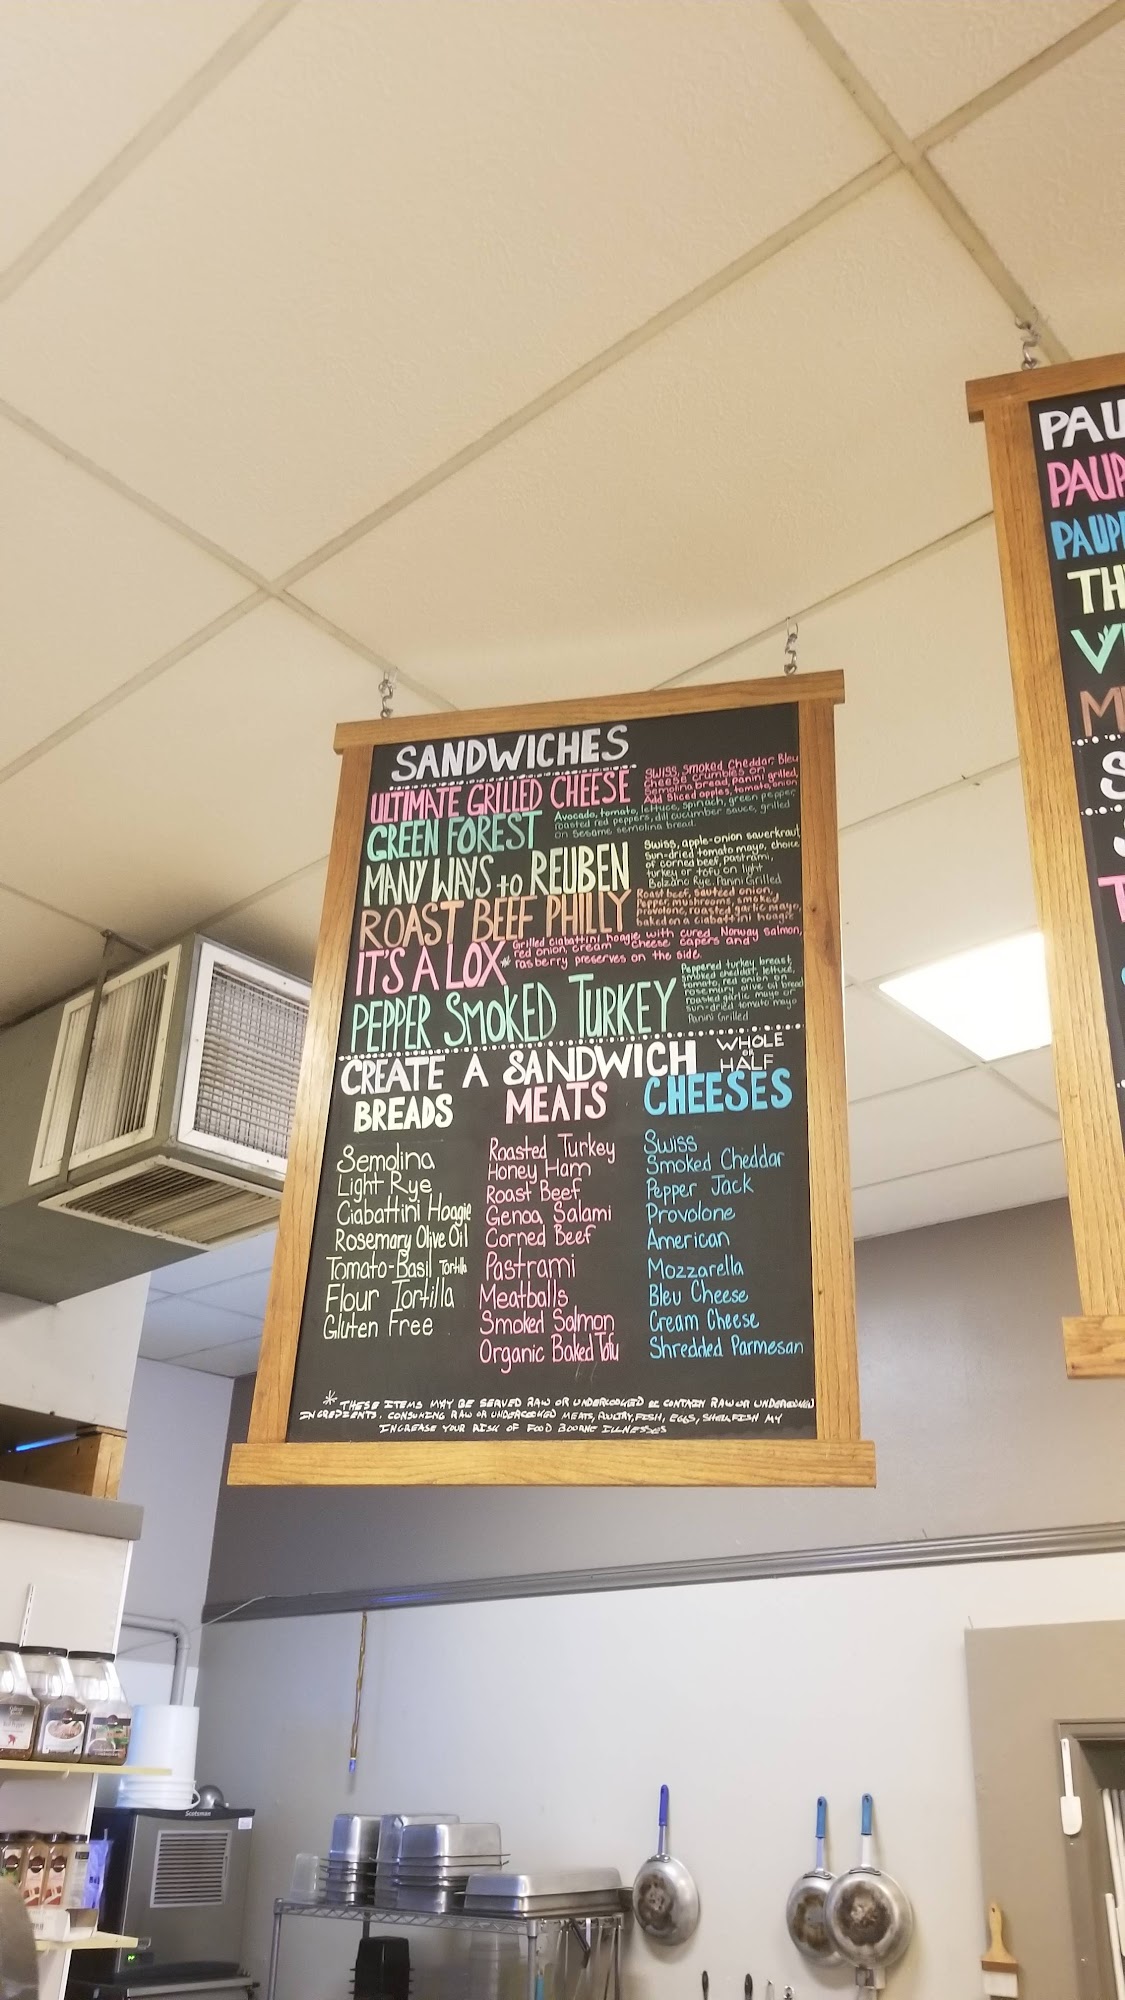 SANDWICHES
ULTIMATE GRILLED CHEESE
Swiss, Smoked Cheddar, Bleu
Cheese crumbles on
Semolina bread, panini grilled,
Add Sliced apples, tomato, onion
GREEN FOREST
Avocado, tomato, lettuce, spinach, green pepper,
roasted red peppers, dill cucumber sauce, grilled
on Sesame semolina bread.
MANY WAYS to REUBEN
Swiss, apple-onion sauerkraut
Sun-dried tomato mayo, choice
of corned beef, pastrami,
turkey or tofu on light
Bolzano Rye. Panini Grilled
ROAST BEEF PHILLY
Roast beef, sauteed onion,
Pepper, mushrooms, smoked
provolone, roasted garlic mayo,
baked on a ciabattini hoagie
IT'S A LOX*
Grilled ciabattini hoagie with cured Norway salmon,
red onion, cream cheese capers and
rasberry preserves on the side.
PEPPER SMOKED TURKEY
Peppered turkey breast,
smoked cheddar, lettuce,
tomato, red onion on
rosemary olive oil bread
roasted garlic mayo or
sun-dried tomato mayo
Panini Grilled
CREATE A SANDWICH
WHOLE
or
HALF
BREADS
Semolina
Light Rye
Ciabattini Hoagie
Rosemary Olive Oil
Tomato-Basil Tortilla
Flour Tortilla
Gluten Free
MEATS
Roasted Turkey
Honey Ham
Roast Beef
Genoa Salami
Corned Beef
Pastrami
Meatballs
Smoked Salmon
Organic Baked Tofu
CHEESES
Swiss
Smoked Cheddar
Pepper Jack
Provolone
American
Mozzarella
Bleu Cheese
Cream Cheese
Shredded Parmesan
* THESE ITEMS MAY BE SERVED RAW OR UNDERCOOKED OR CONTAIN RAW OR UNDERCOOKED
INGREDIENTS. CONSUMING RAW OR UNDERCOOKED MEATS, POULTRY, FISH, EGGS, SHELLFISH MY
INCREASE YOUR RISK OF FOOD BOURNE ILLNESSES
PAU
PAUP
PAUP
TH
Scotsman